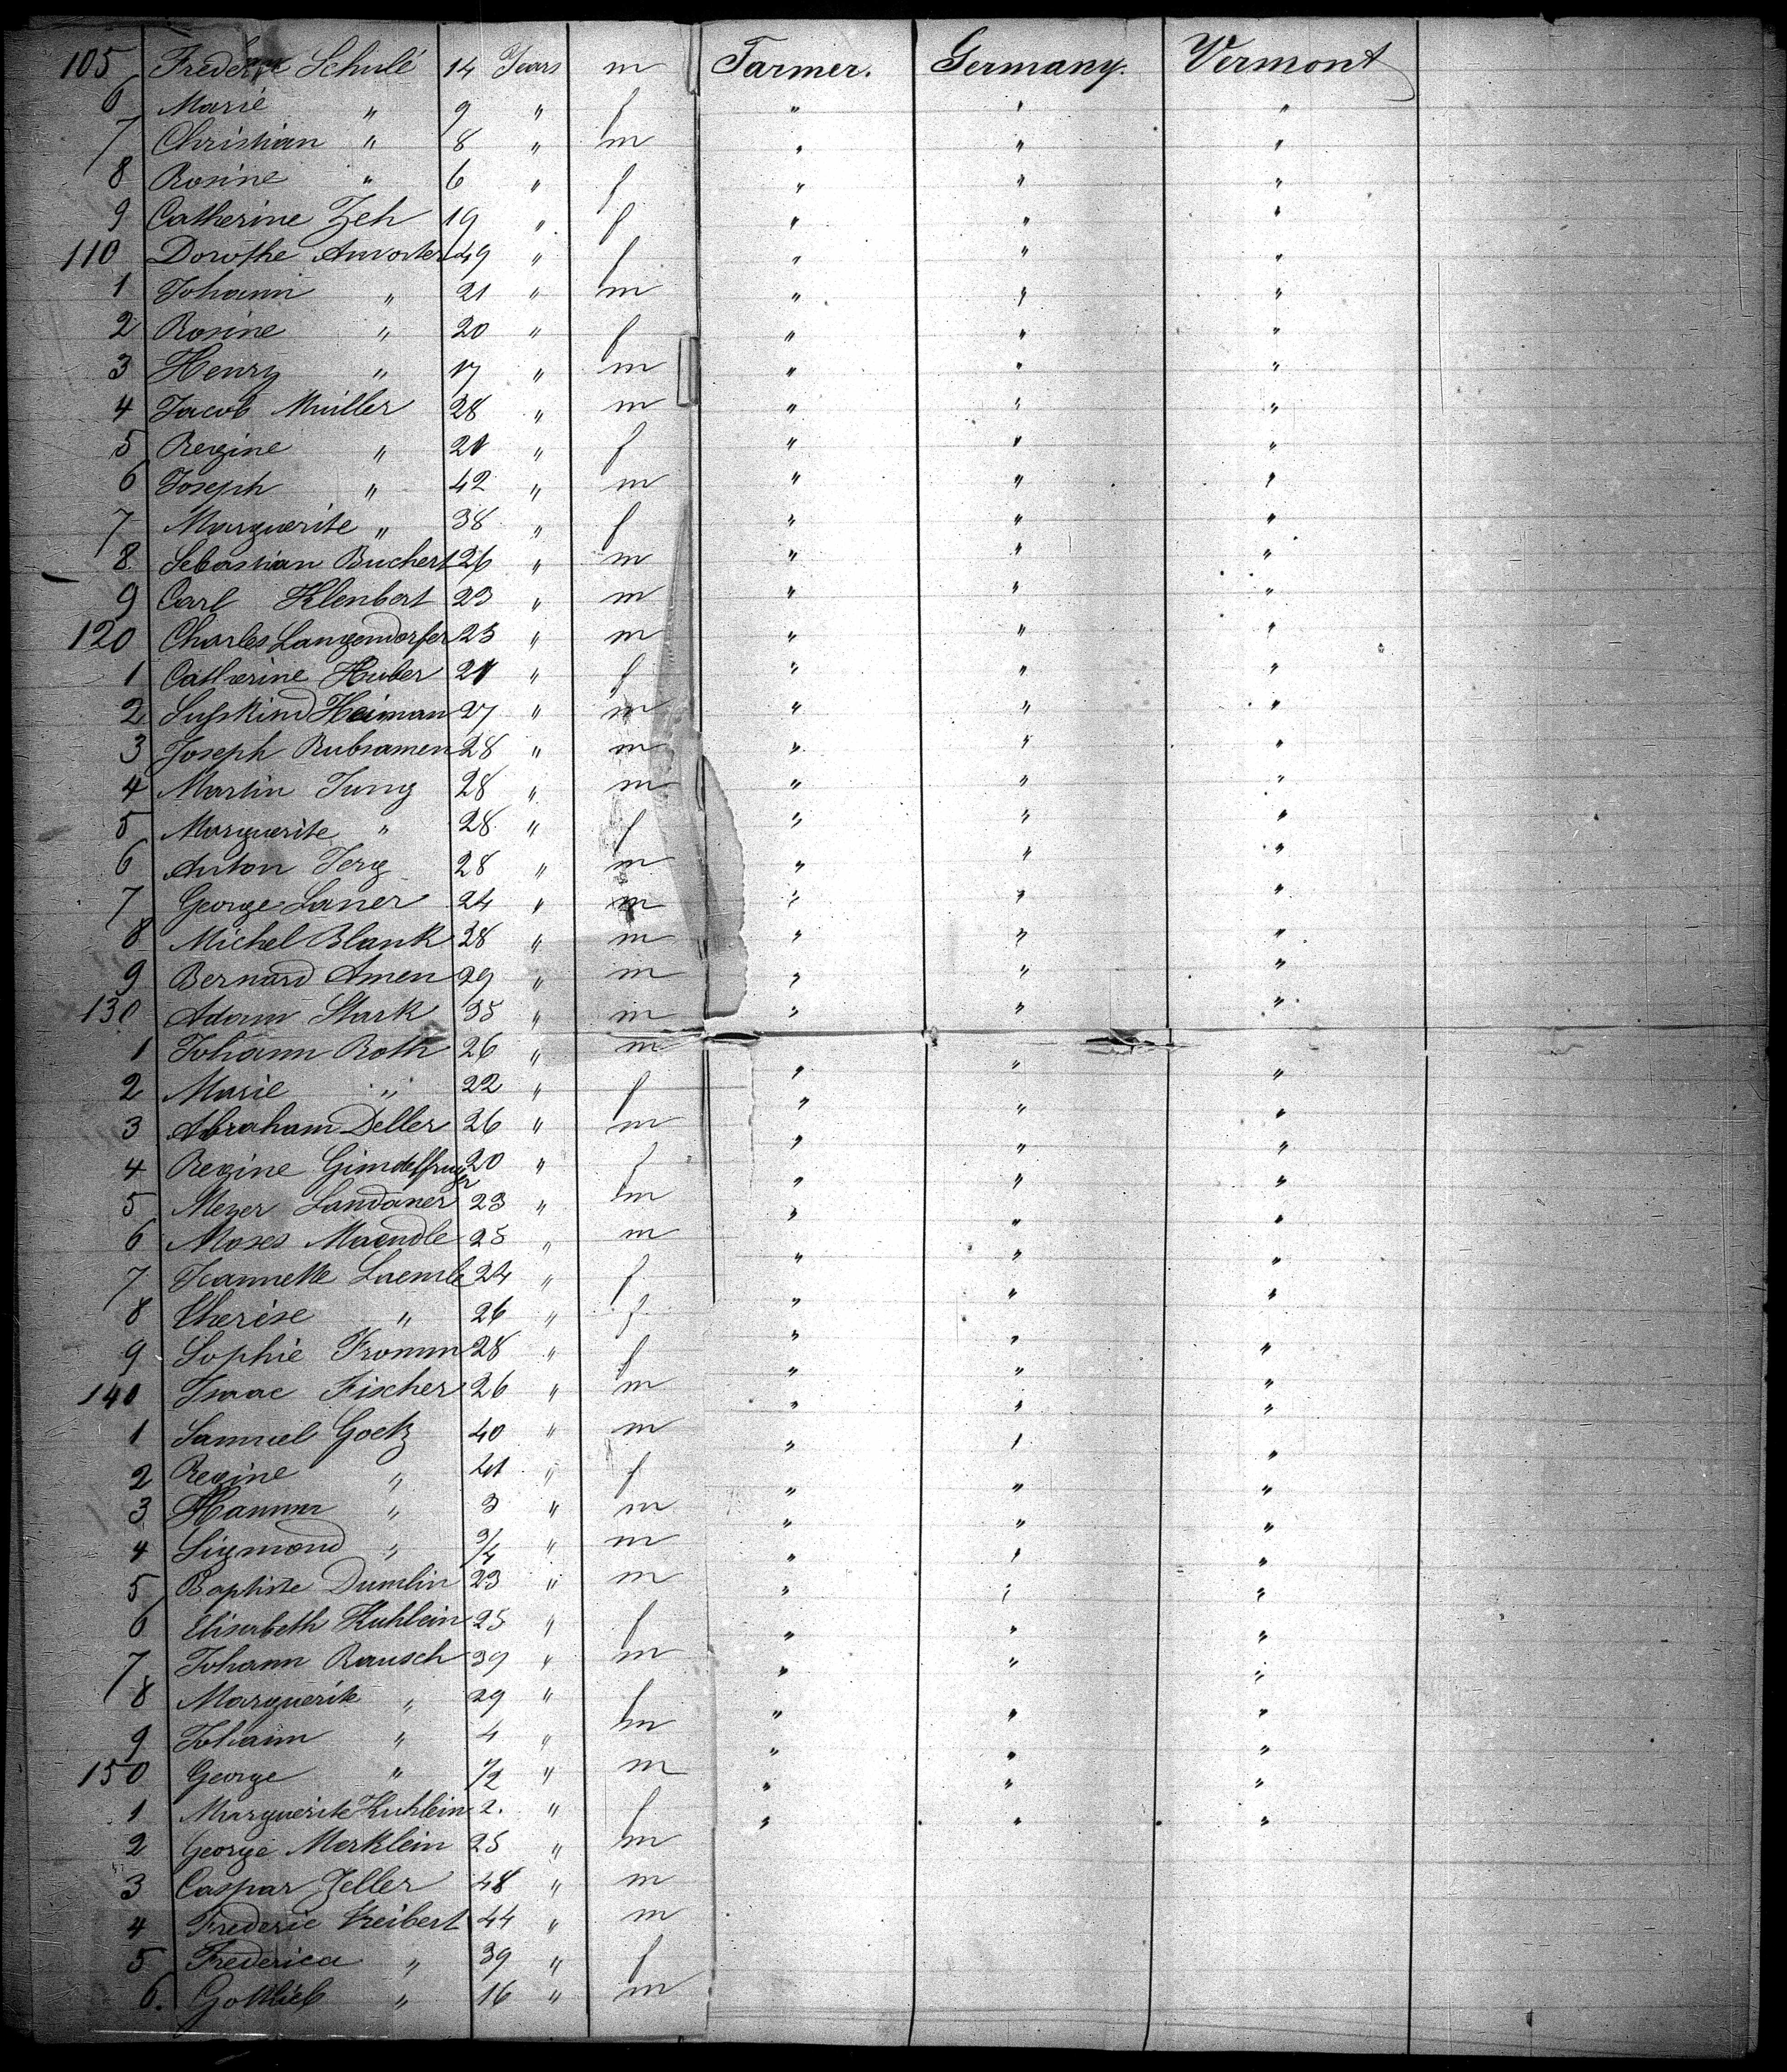 105 Frederic Schulé 14 Years m Farmer. Germany. Vermont
6 Marie " 9 " f " " "
7 Christian " 8 " m " " "
8 Rosine " 6 " f " " "
9 Catherine Zeh 19 " f " " "
110 Dorothe Anvorter 49 " f " " "
1 Johann " 21 " m " " "
2 Rosine " 20 " f " " "
3 Henry " 17 " m " " "
4 Jacob Muller 28 " m " " "
5 Regine " 21 " f " " "
6 Joseph " 42 " m " " "
7 Marguerite " 38 " f " " "
8 Sebastian Buchert 26 " m " " "
9 Carl Klenbort 23 " m " " "
120 Charles Langendorfer 23 " m " " "
1 Catherine Huber 21 " f " " "
2 Susskind Heiman 27 " m " " "
3 Joseph Rubsamen 28 " m " " "
4 Martin Jung 28 " m " " "
5 Marguerite " 28 " f " " "
6 Anton Jerg 28 " m " " "
7 George Laner 24 " m " " "
8 Michel Blank 28 " m " " "
9 Bernard Amen 29 " m " " "
130 Adam Stark 35 " m " " "
1 Johann Roth 26 " m " " "
2 Marie " 22 " f " " "
3 Abraham Deller 26 " m " " "
4 Regine 20 " f " " "
5 Meyer Landaner 23 " m " " "
6 Moses Maendle 25 " m " " "
7 Jeannette Laemle 24 " f " " "
8 Therise " 26 " f " " "
9 Sophie Fromm 28 " f " " "
140 Isaac Fischer 26 " m " " "
1 Samuel Goetz 40 " m " " "
2 Regine " 41 " f " " "
3 " 3 " m " " "
4 Sigmond " 3/4 " m " " "
5 Baptiste Dumlin 23 " m " " "
6 Elisabeth Kuhlein 25 " f " " "
7 Johann Rausch 39 " m " " "
8 Marguerite " 29 " f " " "
9 Johann " 4 " m " " "
150 George " 1/2 " m " " "
1 Marguerite Kuhlein 2. " f " " "
2 George Merklein 25 " m
3 Caspar Zeller 48 " m
4 Frederic Keibert 44 " m
5 Frederica " 39 " f
6. Gottlieb " 16 " m